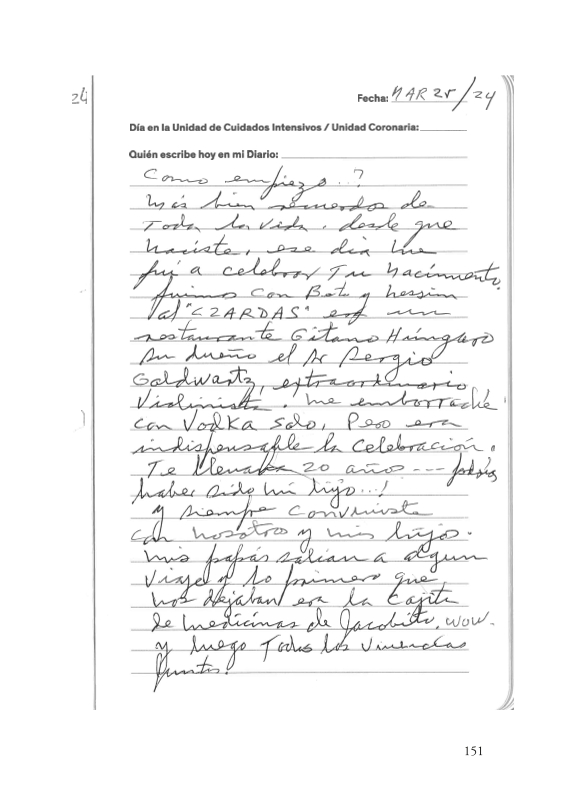 24
Fecha: MAR 25/24
Día en la Unidad de Cuidados Intensivos / Unidad Coronaria:
Quién escribe hoy en mi Diario:
Como empiezo..?
Más bien recuerdos de
Toda la vida, desde que
naciste, ese dia me
fuí a celebrar Tu Nacimiento,
fuimos con Beto y
al "CZARDAS" era un
restaurante Gitano Húngaro
Su dueño el Sr Sergio
Goldwartz, extraordinario
Violinista. me emborraché
con Vodka solo, Pero era
indispensable la Celebración.
Te llevaba 20 años --- podrías
haber sido mi hijo..!
y siempre conviviste
con nosotros y mis hijos.
mis papás salían a algun
viaje y lo primero que
nos dejaban era la Cajita
de medicinas de Jacobito, wow.
y luego Todas las vivencias
Juntos!
151